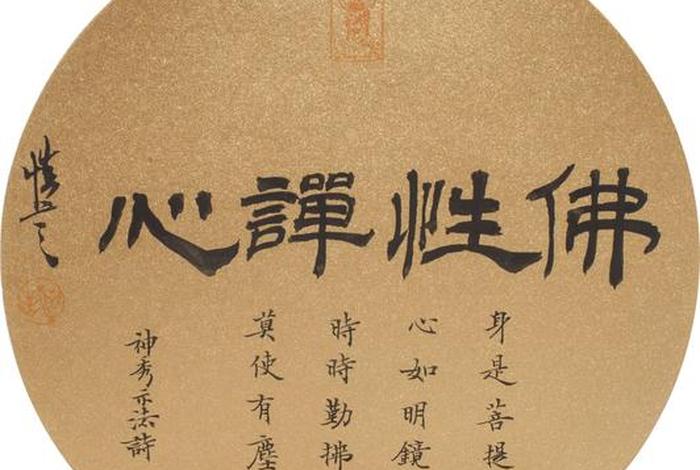 佛性譂心
身是菩提
心如明鏡
時時勤拂
莫使有塵
神秀示法詩